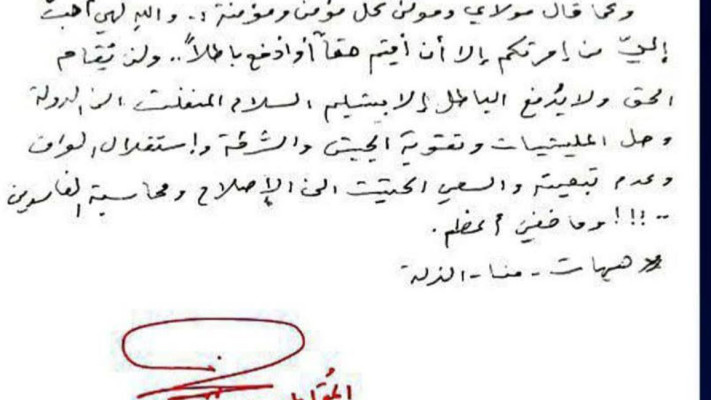 وكما قال مولاي ومولى كل مؤمن ومؤمنة: .. والله لهي أحب
إليّ من إمرتكم إلا أن أقيم حقاً أو أدفع باطلاً .. ولن يُقام
الحق ولا يُدفع الباطل إلا بتسليم السلاح المنفلت الى الدولة
وحل المليشيات وتقوية الجيش والشرطة وإستقلال العراق
وعدم تبعيته والسعي الحثيث الى الإصلاح ومحاسبة الفاسدين
.. !!! وما خفي أعظم.
* هيهات - منا - الذلة